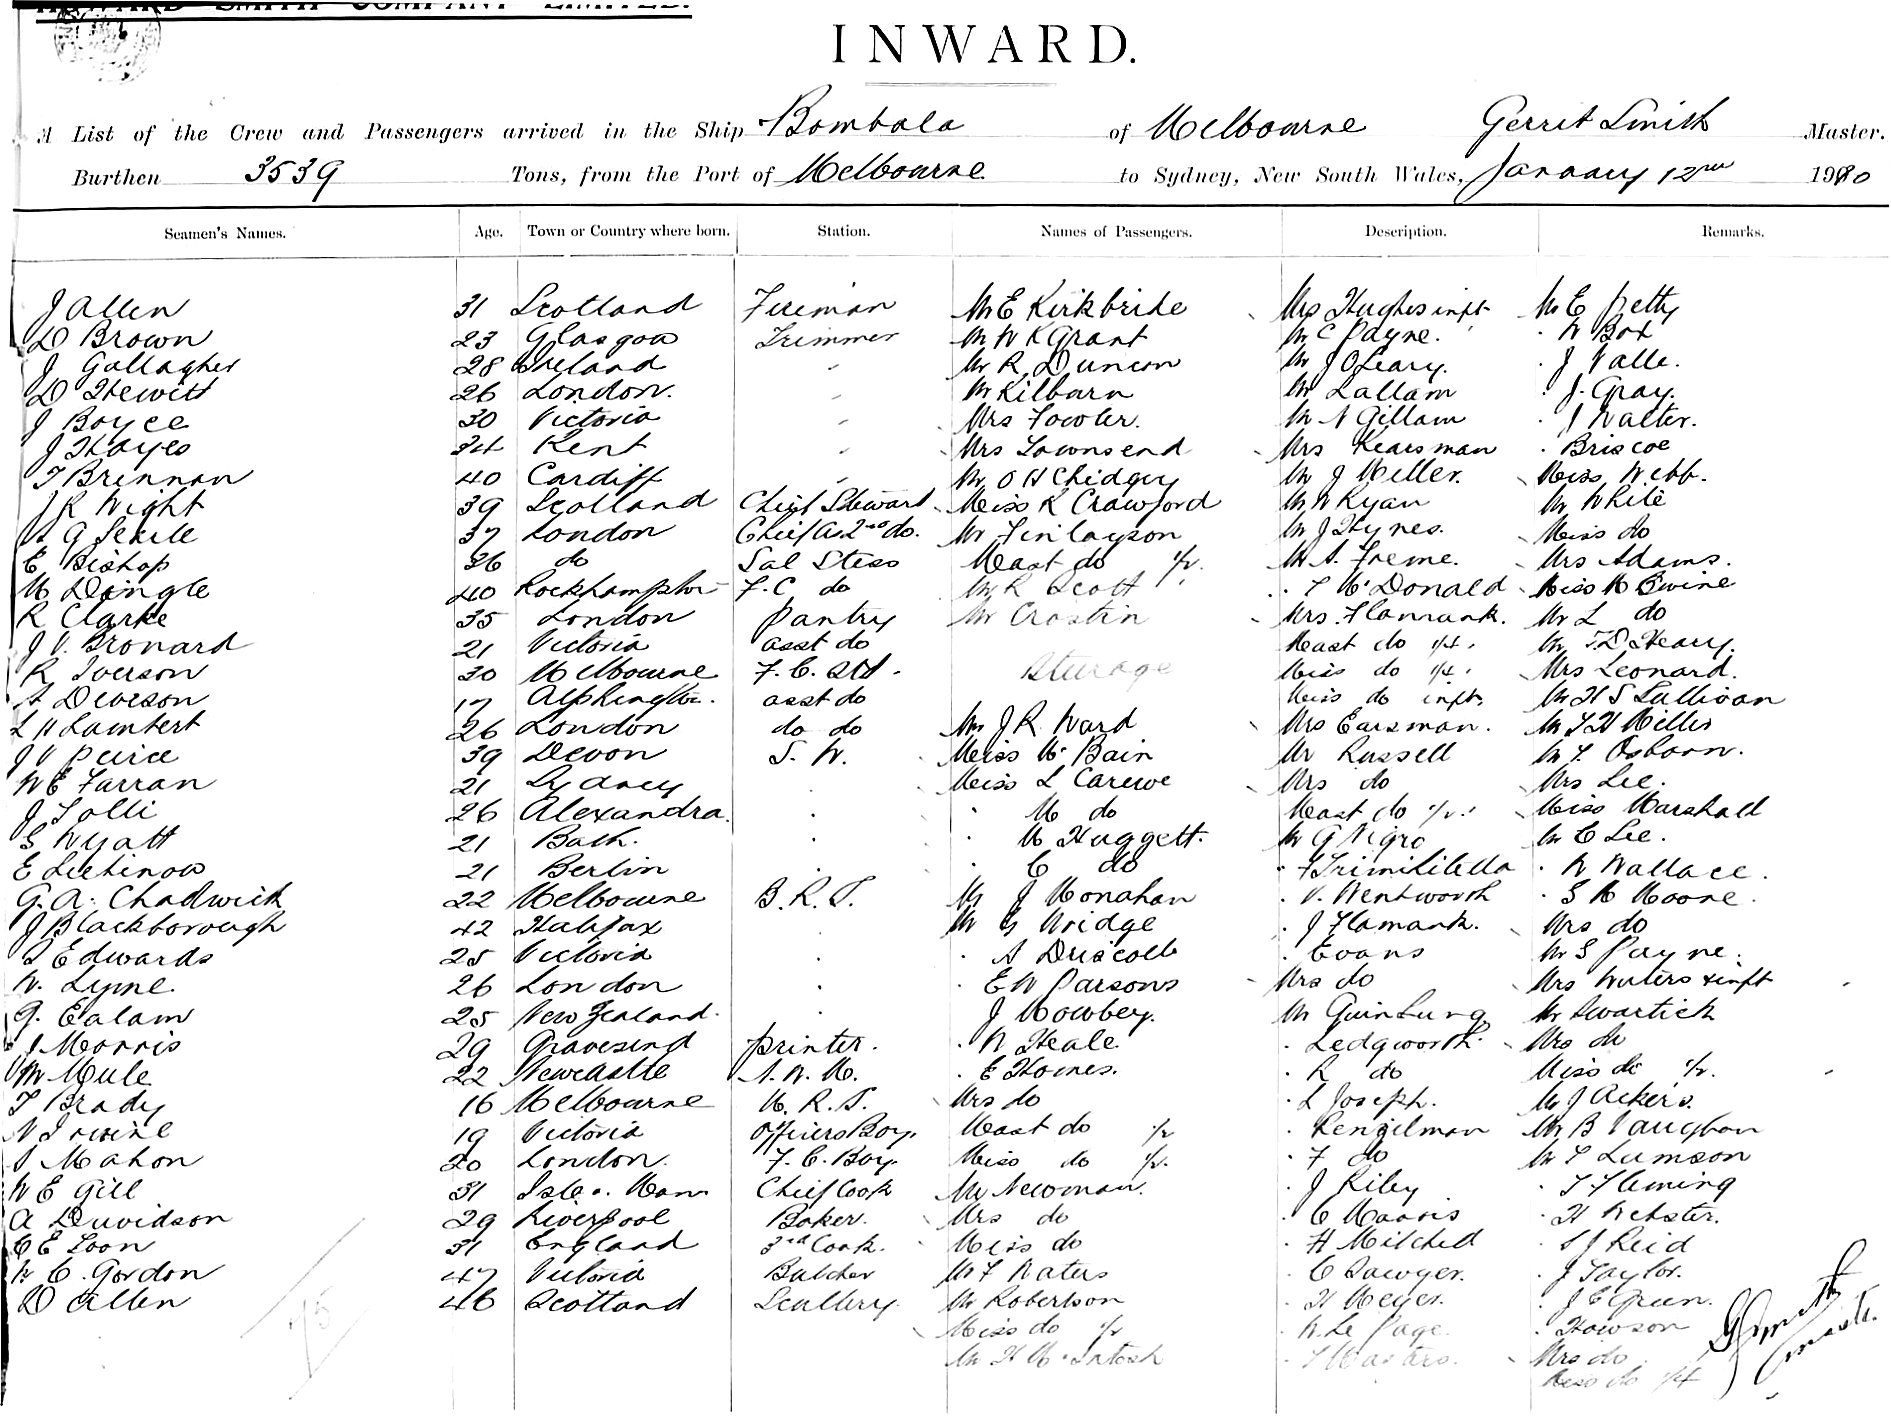 HOWARD SMITH COMPANY LIMITED.
INWARD.
A List of the Crew and Passengers arrived in the Ship Bombala of Melbourne Gerrit Smith Master.
Burthen 3539 Tons, from the Port of Melbourne to Sydney, New South Wales, January 12 1910
Seamen's Names. Age. Town or Country where born. Station. Names of Passengers. Description. Remarks.
J Allen 31 Scotland Fireman Mr E Kirkbride Mrs Hughes inft Mr E Petty
D Brown 23 Glasgow Trimmer Mr W K Grant Mr C Payne. W Box
J Gallagher 28 Ireland " Mr R Duncan Mr J O'Leary. J Valle.
D Hewitt 26 London. " Mr Kilburn Mr Lallam J. Gray.
J Boyce 30 Victoria " Mrs Fowler. Mr N Gillam J Walter.
J Hayes 34 Kent " Mrs Townsend Mrs Kearsman Briscoe
T Brennan 40 Cardiff " Mr O H Chidgey Mr J Miller. Miss Webb.
J R Wight 39 Scotland Chief Steward Miss K Crawford Mr W Ryan Mr White
G 37 London Chief as 2nd do. Mr Finlayson Mr J Hynes. Miss do
E Bishop 36 do Sal Stess Mast do ½. Mr A. Freme. Mrs Adams.
M Dingle 40 Rockhampton F.C do Mr R Scott T McDonald Miss M Ewine
R Clarke 35 London Pantry Mr Crostin Mrs Flamank. Mr L do
J V. Bronard 21 Victoria asst do Mast do ¼. Mr T.D Heary.
R Iverson 30 Melbourne F. C. Std. Steerage Miss do ¼. Mrs Leonard.
A Deveson 17 Alphington. asst do Miss do inft. Mr H S Sullivan
L H Lambert 26 London do do Mr J R. Ward Mrs Earsman. Mr T H Millis
J V Peirce 39 Devon S. W. Miss McBain Mr Russell Mr T. Osborn.
W E Farran 21 Sydney Miss L Carewe Mrs do Mrs Lee.
J Tolli 26 Alexandra. M do Mast do ½. Miss Marshall
S Wyatt 21 Bath. M Huggett. Mr G Nigro Mr C Lee.
E 21 Berlin C do W Wallace.
G. A. Chadwick 22 Melbourne B. R. S. Mr J Monahan V. Wentworth S M Moore.
J Blackborough 42 Halifax Mr G Wridge J Flamank. Mrs do
S Edwards 25 Victoria A Driscoll Evans Mr S Payne.
W. Lyne. 26 London E W Parsons Mrs do Mrs Waters & inft
G. Ealam 25 New Zealand. J Mowbey. Mr Swartick
J Morris 29 Gravesend Printer. W Heale Ledgworth. Mrs do
W Mule 22 Newcastle E Homes. R do Miss do ½.
T Brady 16 Melbourne M. R. S. Mrs do L Joseph. Mr J Ackers.
N Irvine 19 Victoria Officers Boy. Mast do ½ Kengelman Mr B Vaughan
S Mahon 20 London. F. C. Boy. Miss do ½. F do Mr T Lumson
W E Gill 31 Isle o. Man Chief Cook Mr Newman. J Riley T Fleming
A Davidson 29 Liverpool Baker. Mrs do C Morris H Webster.
C E Loon 31 England 3rd Cook. Miss do H Mitchell S J Reid
W C. Gordon 47 Victoria Butcher Mr F Waters C Sawyer. J Taylor.
D Allen 46 Scotland Scullery. Mr Robertson H Meyer. J C Green.
Miss do ½ W. Le Page. Howson
Mr H McIntosh T Masters. Mrs do
Miss do ¼